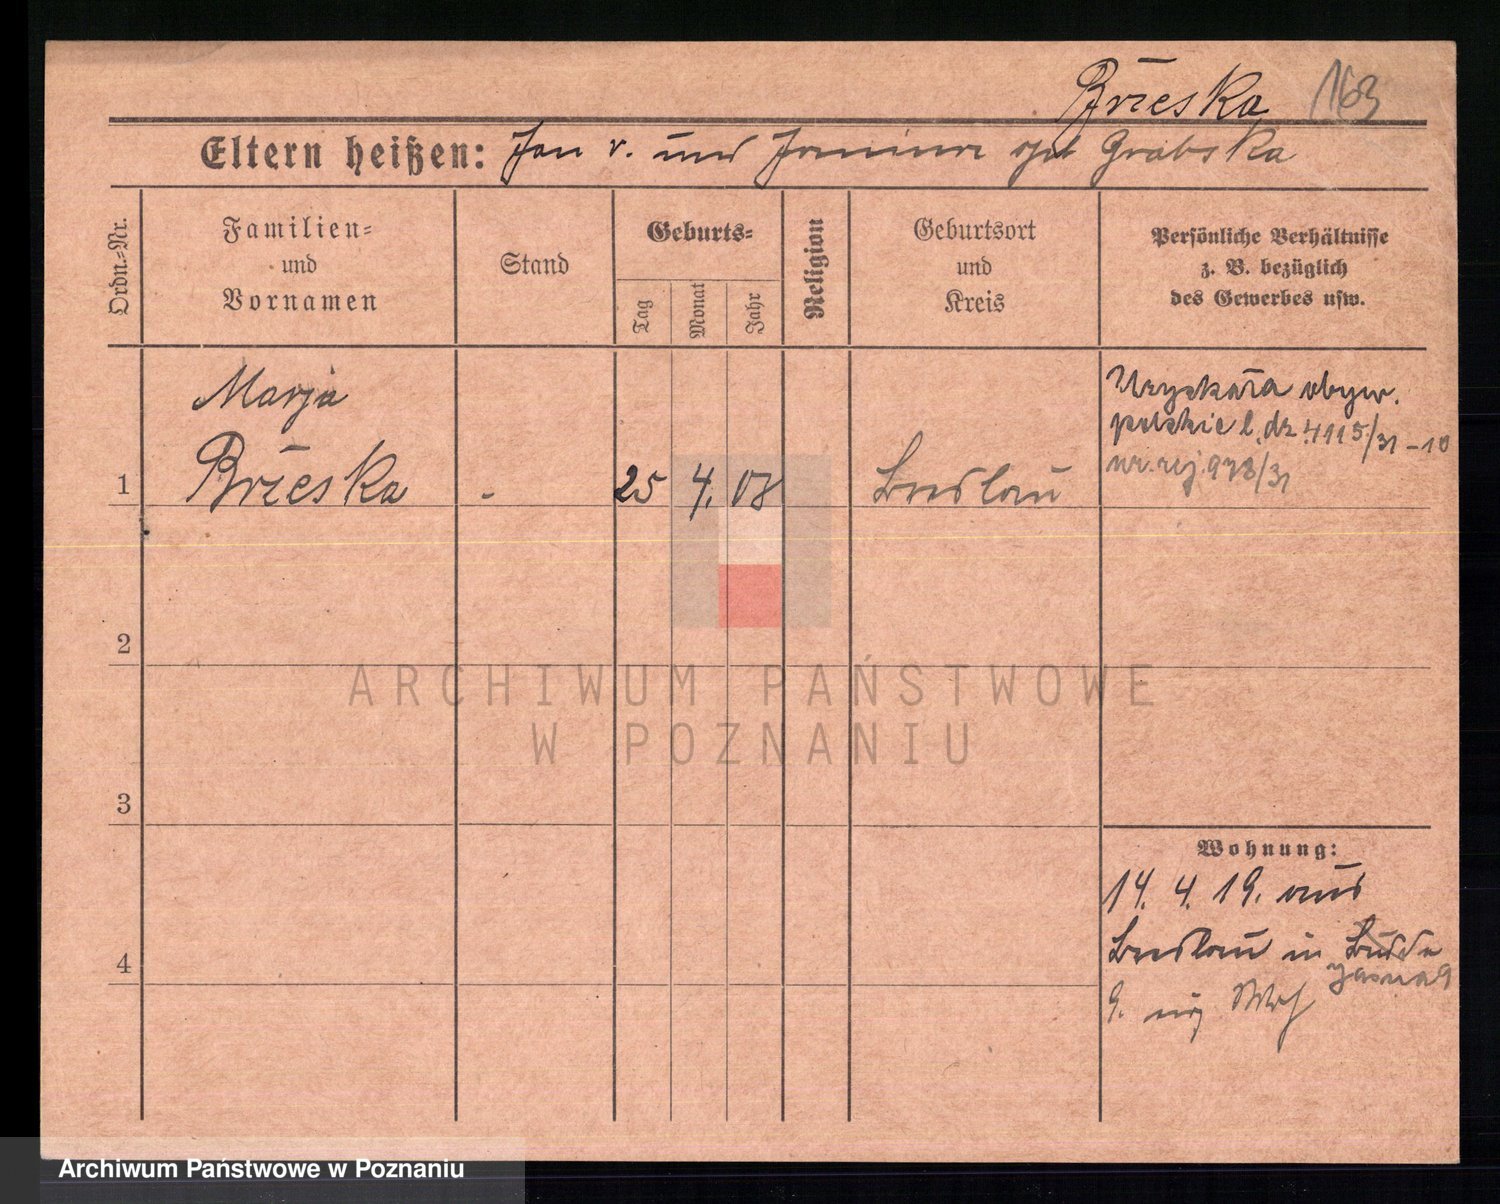 Brzeska 163
Eltern heißen: Jan v. und Janina geb Grabska
Ordn.-Nr.
Familien-
und
Vornamen
Stand
Geburts-
Tag
Monat
Jahr
Religion
Geburtsort
und
Kreis
Persönliche Verhältnisse
z. B. bezüglich
des Gewerbes usw.
Marja
1 Brzeska - 25 4. 08 Breslau
Uzyskała obyw.
polskie l. dz. 4115/31-10
nr. rej. 978/31
2
3
4
Wohnung:
14. 4. 19. aus
Breslau in
Jasna 9
9.
ARCHIWUM PAŃSTWOWE
W POZNANIU
Archiwum Państwowe w Poznaniu